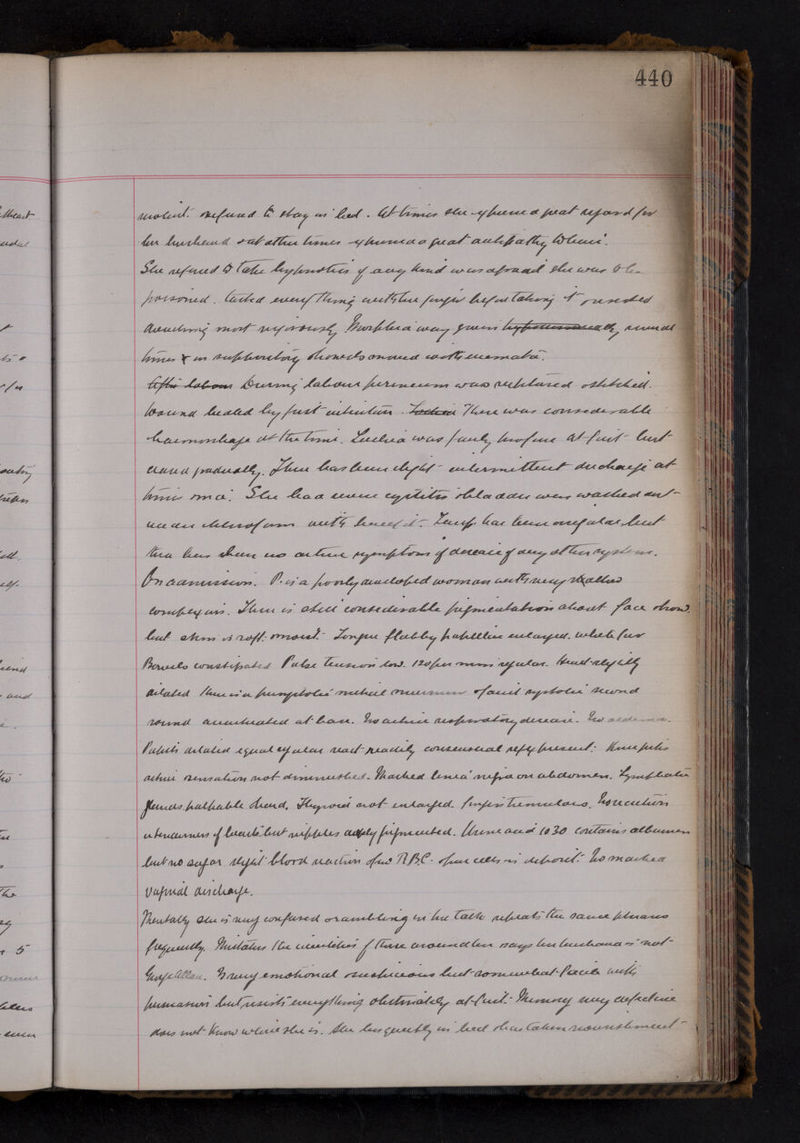 440
violent. refused to stay in bed. At times she expressed a great regard for
her husband & at other times expressed a great antipathy to him.
She refused to take hypnotics of any kind was afraid she was to be
poisoned. tasted every thing with her finger before taking it & resisted
most vigorously. Morphia was given hypodermically several
times & in suppository bowels moved with enemata.
After labour During labour perineum was ruptured & stitched.
Wound healed by first intention. Lochia There was considerable
haemorrhage at the time. Lochia was fairly profuse at first but
ceased gradually. There has been slight intermittent discharge at
times since. She had severe cystitis & bladder was washed out
under chloroform with benefit. Temp. has been irregular but
there has been no active symptoms of disease of any other system.
On admission. P. is a poorly developed woman with very sallow
complexion. There is still considerable pigmentation about face & brow.
but skin is soft & moist. Tongue flabby papillae enlarged. white fur
Bowels constipated Pulse tension low. 120 per min regular. Heart slightly
dilated there is a presystolic mitral murmur & faint systolic second
sound accentuated at base. No active respiratory disease. No oedema.
Pupils dilated equal regular react readily consensual reflex present. Knee jerks
active sensation not diminished. Marked linea nigra on abdomen. Lymphatic
glands palpable. Thyroid not enlarged. fingers tremulous. No
tenderness of breasts but nipples deeply pigmented. Urine acid 1030 contains albumen
but no sugar slight blood reaction & few R.B.C. & pus cells in deposit. No marked
vaginal discharge.
Mentally she is very confused & rambling in her talk repeats the same phrases
frequently. Mistakes the identities of those around her says her husband is not
George Allan. Is very emotional & suspicious but somewhat facile with
persuasion but resists everything obstinately at first. Memory very defective
does not know where she is. She lies quietly in bed & has taken nourishment